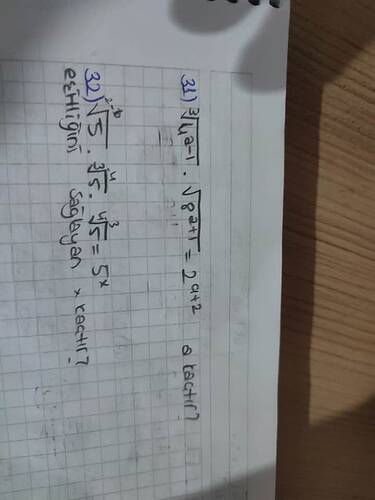 31) ∛(4^(a-1)) · √(8^(a+1)) = 2^(a+2) a kaçtır?
32) √5 · ∛5 · ∜5 = 5^x
eşitliğini sağlayan x kaçtır?